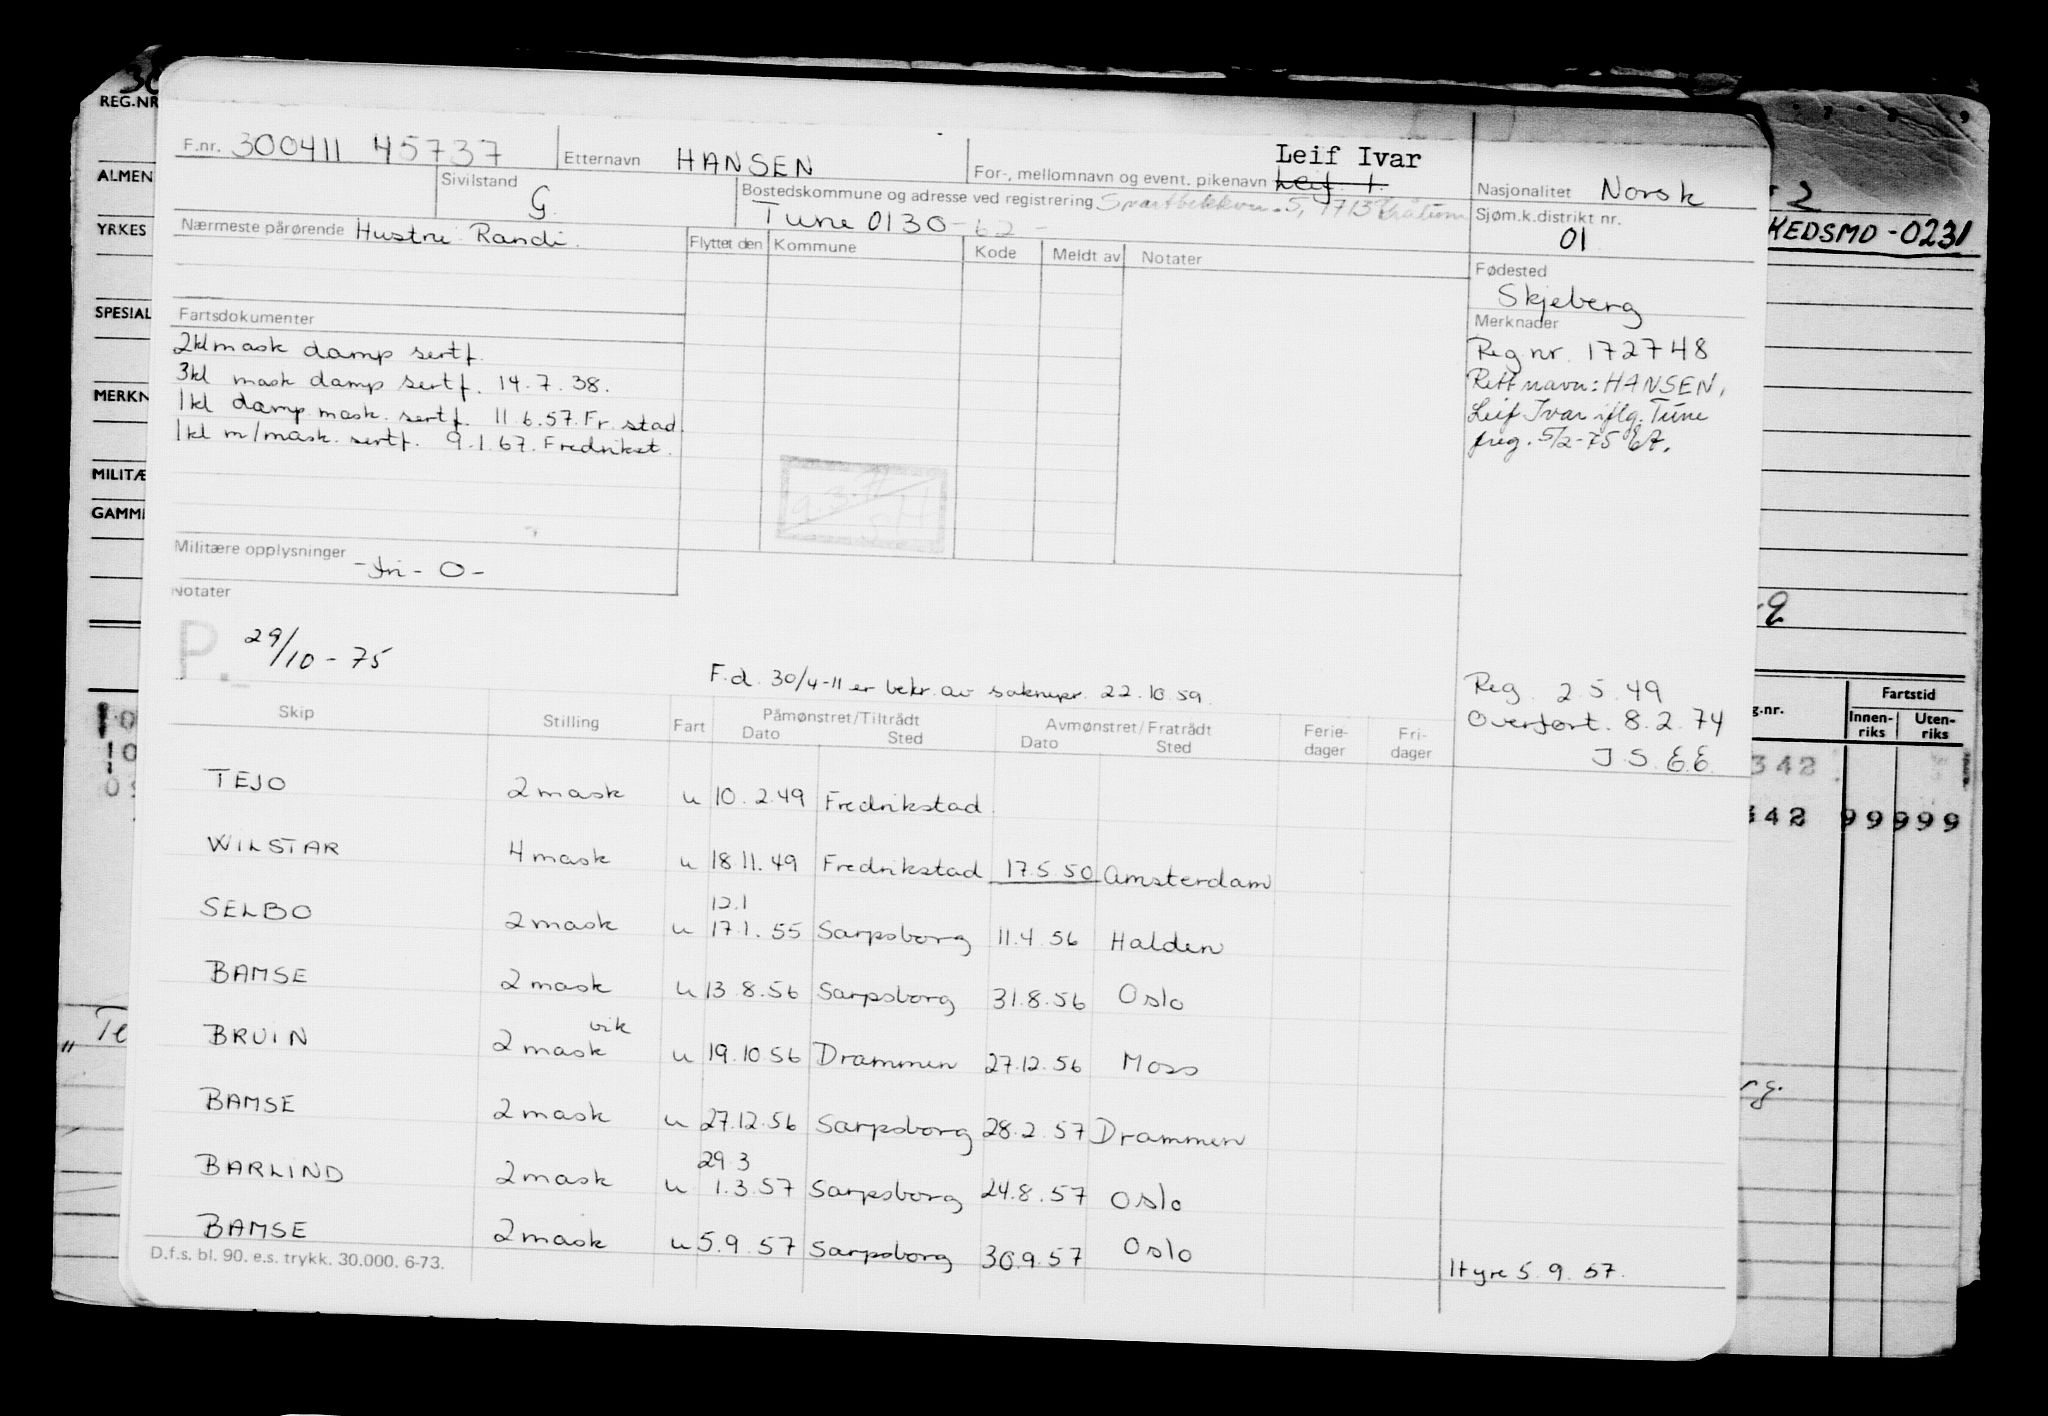 REG.NR
F.nr. 300411 45737
Etternavn HANSEN
For-, mellomnavn og event. pikenavn Leif I.
Leif Ivar
Nasjonalitet Norsk
ALMEN
Sivilstand
G.
Bostedskommune og adresse ved registrering
Tune 0130-62-
Sjøm.k.distrikt nr.
01
KEDSMO-0231
YRKES
Nærmeste pårørende Hustru Randi.
Flyttet den
Kommune
Kode
Meldt av
Notater
Fødested
Skjeberg
SPESIAL
Fartsdokumenter
2kl mask damp sertf.
3kl mask damp sertf. 14.7.38.
1kl damp mask. sertf. 11.6.57. Fr.stad.
1kl m/mask. sertf. 9.1.67. Fredrikst.
Merknader
Reg nr. 172748
Rett navn: HANSEN,
Leif Ivar iflg. Tune
freg. 5/2-75
MERKN
MILITÆ
GAMM
Militære opplysninger
Notater
P.
29/10-75
F.d. 30/4-11 er bekr. av 22.10.59.
Reg. 2.5.49
Overført. 8.2.74
J.S. E.E.
g.nr.
Fartstid
Innen-
riks
Uten-
riks
342
342 99999
Skip
Stilling
Fart
Påmønstret/Tiltrådt
Dato
Sted
Avmønstret/Fratrådt
Dato
Sted
Ferie-
dager
Fri-
dager
TEJO 2 mask u 10.2.49 Fredrikstad.
WILSTAR 4 mask u 18.11.49 Fredrikstad 17.5.50 Amsterdam
12.1
SELBO 2 mask u 17.1.55 Sarpsborg 11.4.56 Halden
BAMSE 2 mask u 13.8.56 Sarpsborg 31.8.56 Oslo
vik
BRUIN 2 mask u 19.10.56 Drammen 27.12.56 Moss
BAMSE 2 mask u 27.12.56 Sarpsborg 28.2.57 Drammen
29.3
BARLIND 2 mask u 1.3.57 Sarpsborg 24.8.57 Oslo
BAMSE 2 mask u 5.9.57 Sarpsborg 30.9.57 Oslo
Hyre 5.9.57.
D.f.s. bl. 90. e.s. trykk. 30.000. 6-73.